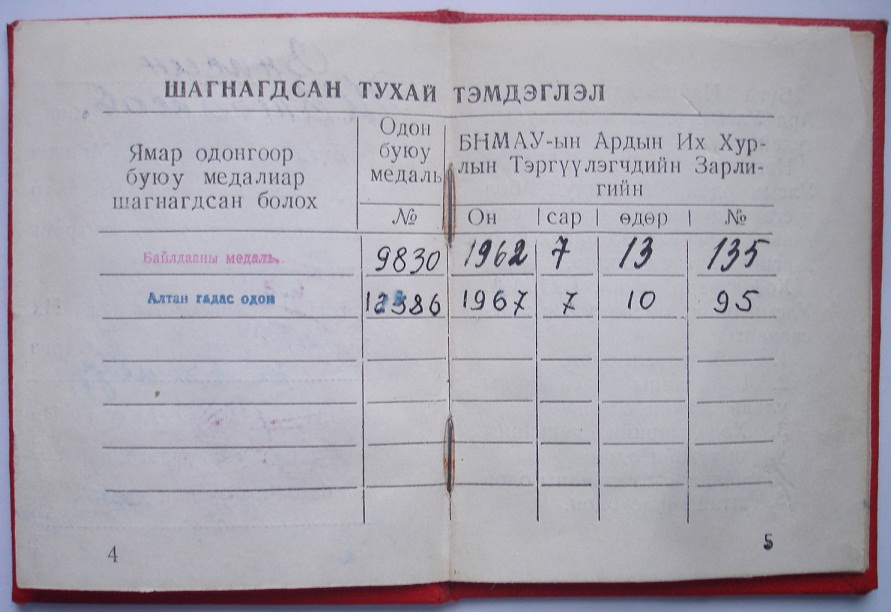 ШАГНАГДСАН ТУХАЙ ТЭМДЭГЛЭЛ
Ямар одонгоор
буюу медалиар
шагнагдсан болох
Одон
буюу
медаль
№
БНМАУ-ын Ардын Их Хур-
лын Тэргүүлэгчдийн Зарли-
гийн
Он сар өдөр №
Байлдааны медаль. 9830 1962 7 13 135
Алтан гадас одон 1967 7 10 95
4
5